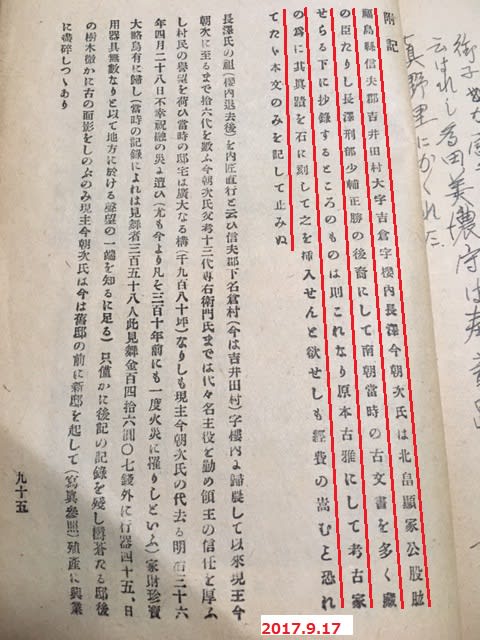 真野里にかくれた
附記
福島縣信夫郡吉井田村大字吉倉字樓内長澤今朝次氏は北畠顯家公股肱
の臣たりし長澤刑部少輔正勝の後裔にして南朝當時の古文書を多く藏
せらる下に抄錄するところのものは則これなり原本古雅にして考古家
の爲に其眞蹟を石に刻して之を挿入せんと欲せしも經費の嵩むと恐れ
てたゞ本文のみを記して止みぬ
長澤氏の祖(樓内退去後)を内匠直行と云ひ信夫郡下名倉村(今は吉井田村)字樓内よ歸農して以來現主今
朝次に至るまで拾六代を數ふ今朝次氏父考十三代專右衛門氏までは代々名主役を勤め領主の信任を厚ふ
し村民の擧望を荷ひ當時の邸宅は廣大なる構(千九百八十坪)なりしも現主今朝次氏の代去る明治三十六
年四月二十八日不幸祝融の災よ遭ひ(尤も今より凡そ三百十年前にも一度火災に罹りしといふ)家財珍寶
大略烏有に歸し(當時の記錄によれは見舞者三百五十八人此見舞金百四拾六圓〇七錢外に行器四十五、日
用器具無數なりと以て地方に於ける聲望の一端を知るに足る)只僅かに後記の記錄を殘し鬱蒼たる邸後
の樹木微かに古の面影をしのぶのみ現主今朝次氏は今は舊邸の前に新邸を起して(寫眞參照)殖產に興業
に碎しつゝあり
九十五
2017.9.17